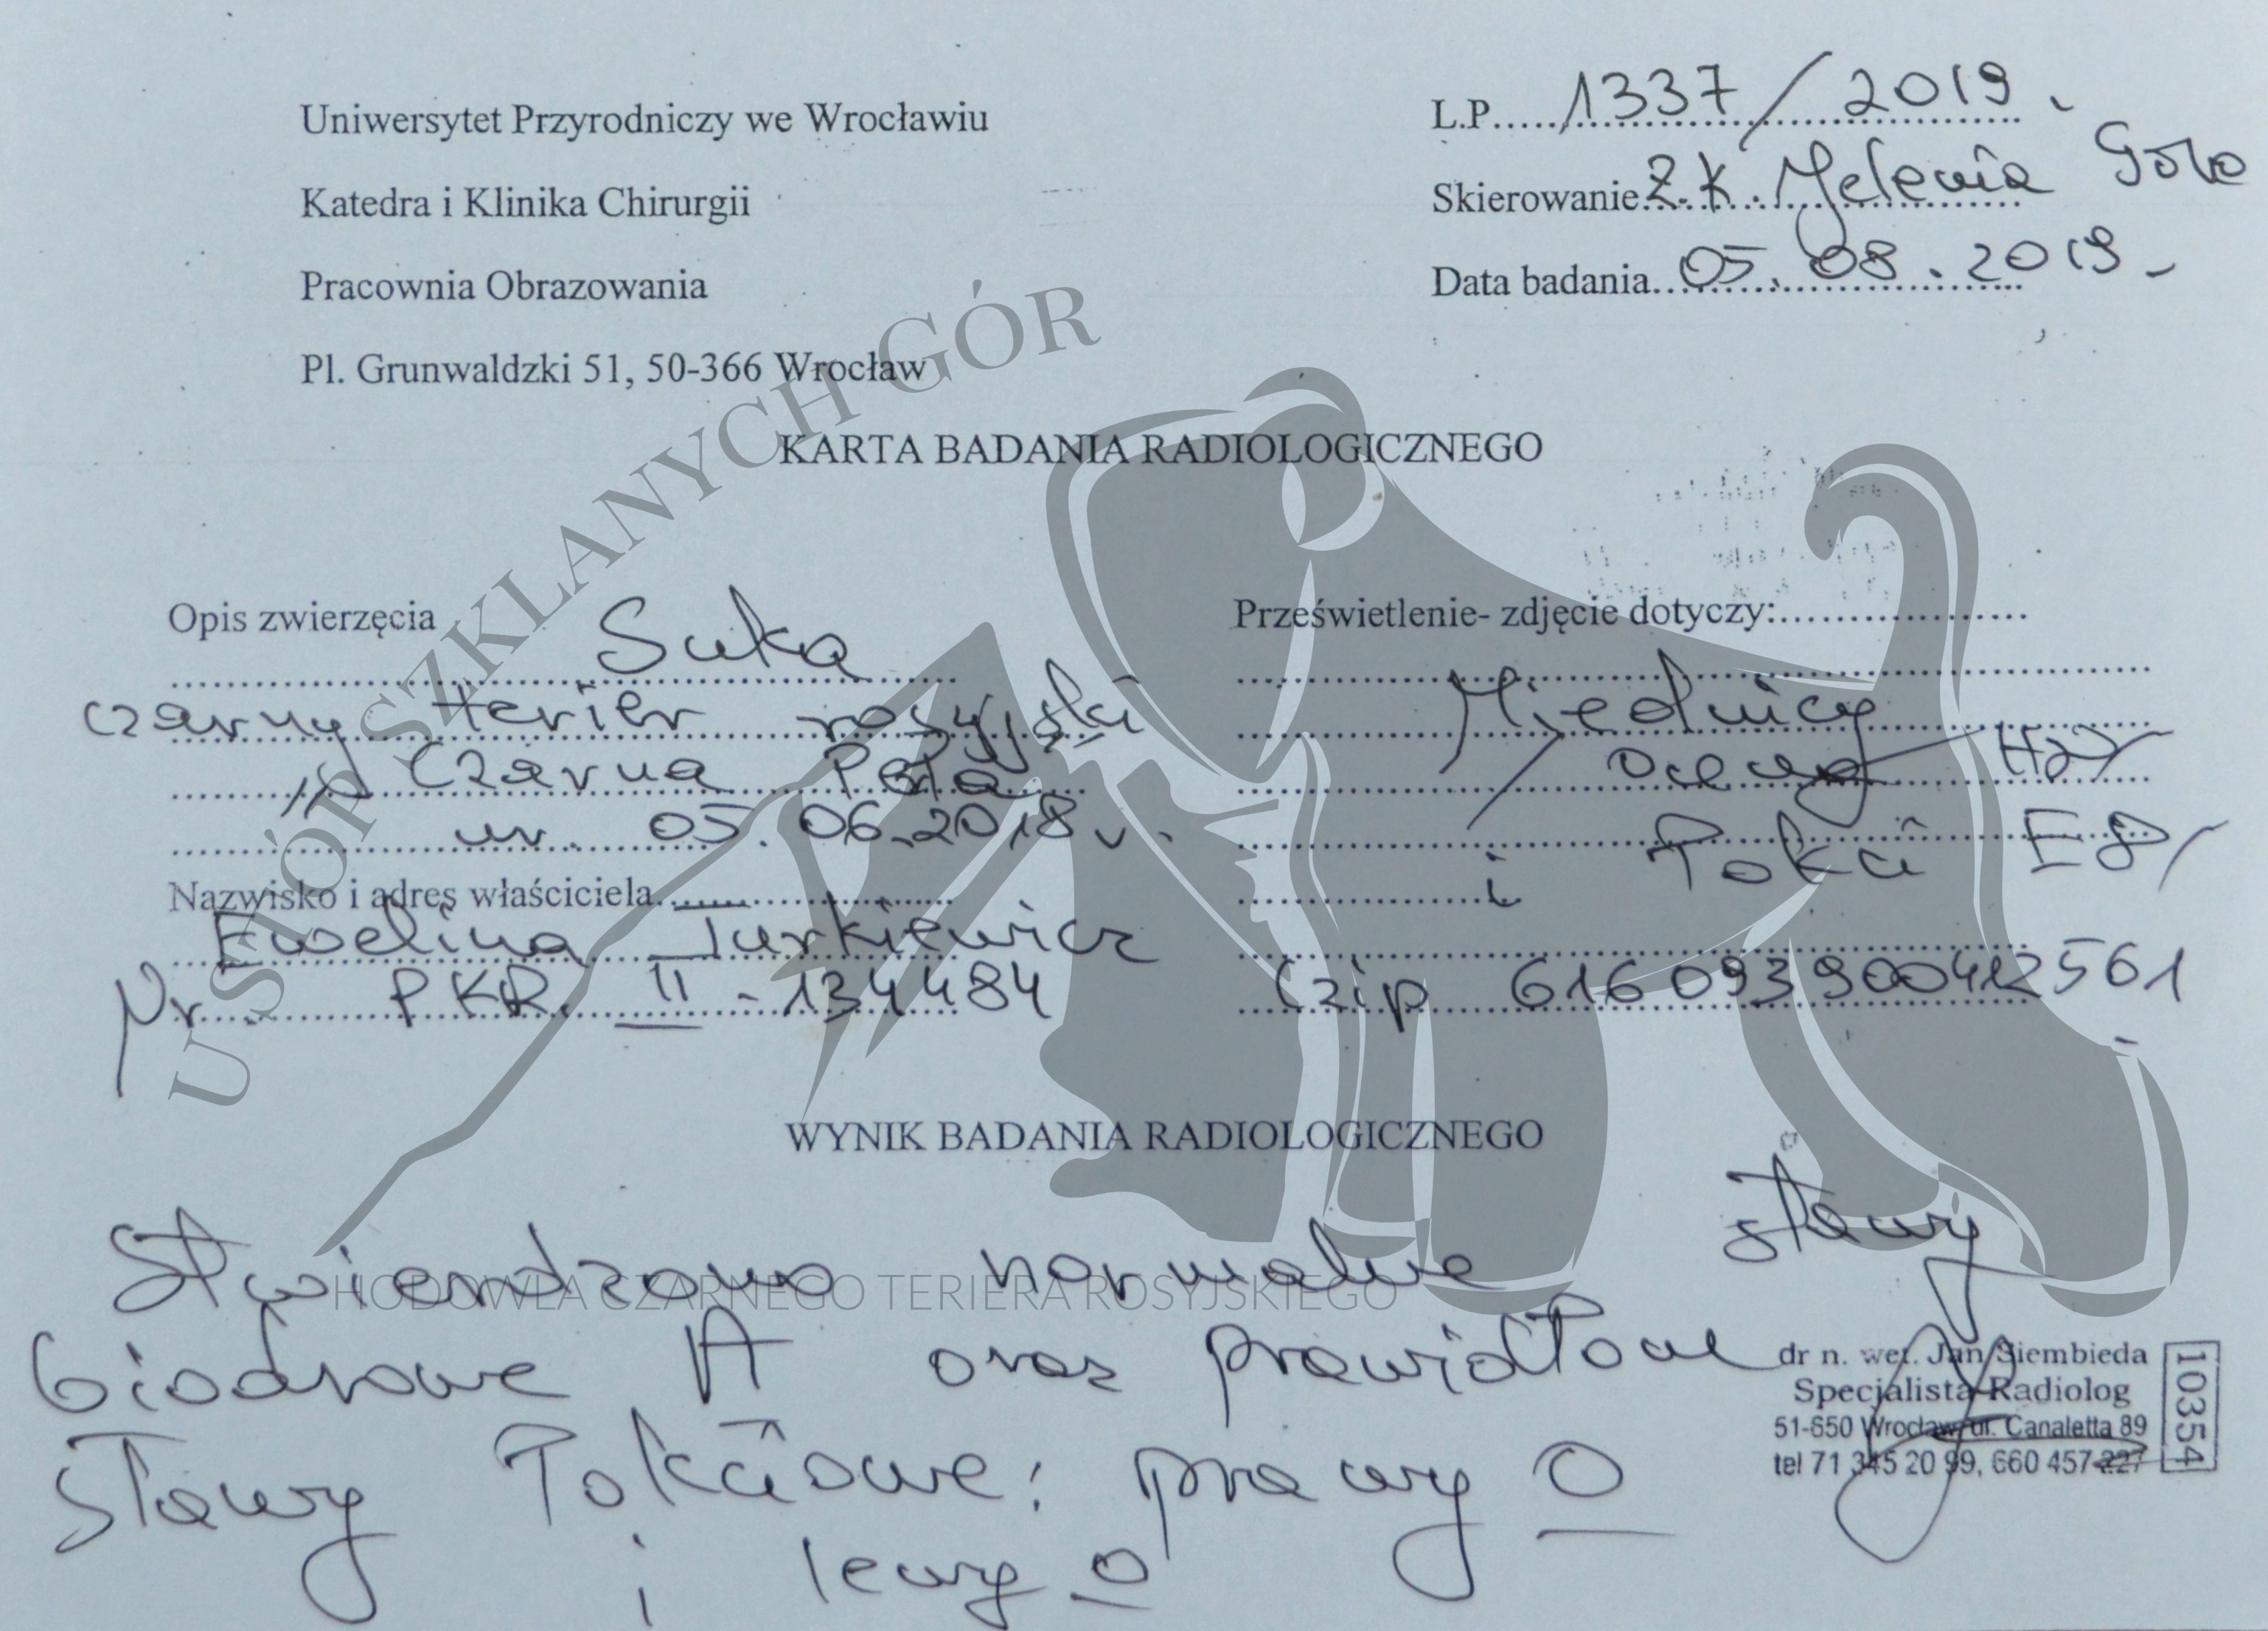 Uniwersytet Przyrodniczy we Wrocławiu
Katedra i Klinika Chirurgii
Pracownia Obrazowania
Pl. Grunwaldzki 51, 50-366 Wrocław
L.P.....1337/2019.
Skierowanie Z.K. Jelenia Góra
Data badania 05.08.2019
U STÓP SZKLANYCH GÓR
KARTA BADANIA RADIOLOGICZNEGO
Opis zwierzęcia
Suka
czarny terier rosyjski
Czarna Perła
ur. 05.06.2018 r.
Nazwisko i adres właściciela
Ewelina Turkiewicz
Nr. PKR. II-134484
Prześwietlenie- zdjęcie dotyczy:
Miednicy
ocena HD/
i łokci ED/
Czip 616093900412561
WYNIK BADANIA RADIOLOGICZNEGO
Stwierdzono normalne stawy
biodrowe A oraz prawidłowe
stawy łokciowe: prawy 0
i lewy 0
HODOWLA CZARNEGO TERIERA ROSYJSKIEGO
dr n. wet. Jan Siembieda
Specjalista Radiolog
51-650 Wrocław, ul. Canaletta 89
tel 71 345 20 99, 660 457 227
10354